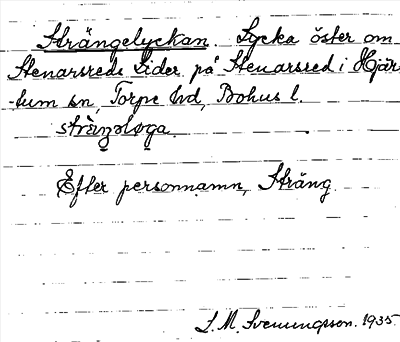 Strängelyckan. Lycka öster om
Stenarsreds Lider på Stenarsred i Hjär-
tum sn, Torpe hd, Bohus l.
Efter personnamn, Sträng
S. M. Svenungsson. 1935.